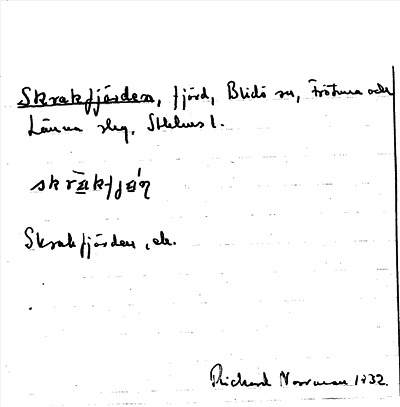 Skrakfjärden, fjärd, Blidö sn, Frötuna och
Länna slg, Sthlms l.
skrākfjạ́ṇ
Skrakfjärden, ek.
Richard Norrman 1932.